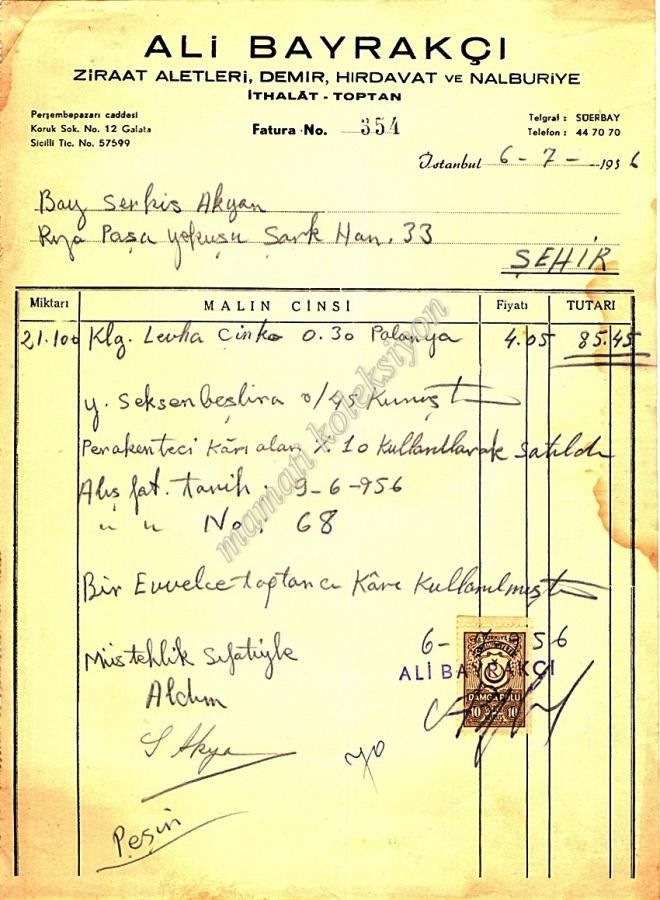 ALİ BAYRAKÇI
ZİRAAT ALETLERİ, DEMİR, HIRDAVAT VE NALBURİYE
İTHALÂT - TOPTAN
Perşembepazarı caddesi
Koruk Sok. No. 12 Galata
Sicilli Tic. No. 57599
Fatura No. 354
Telgraf : SÜERBAY
Telefon : 44 70 70
İstanbul 6-7-1956
Bay Serkis Akyan
Rıza Paşa yokuşu Şark Han. 33
ŞEHİR
Miktarı MALIN CİNSİ Fiyatı TUTARI
21.100 Klg. Levha Çinko 0.30 Polonya 4.05 85.45
y. Seksenbeşlira 0/45 Kuruştur
Perakenteci Kârı olan % 10 Kullanılarak satıldı
Alış fat. tarih: 9-6-956
" " No: 68
Bir Evvelce toptancı Kârı Kullanılmıştır
6- 56
Müstehlik Sıfatiyle
Aldım
ALİ BAYRAKÇI
TÜRKİYE
DAMGA PULU
10 10
S Akya
Peşin
mamati koleksiyon